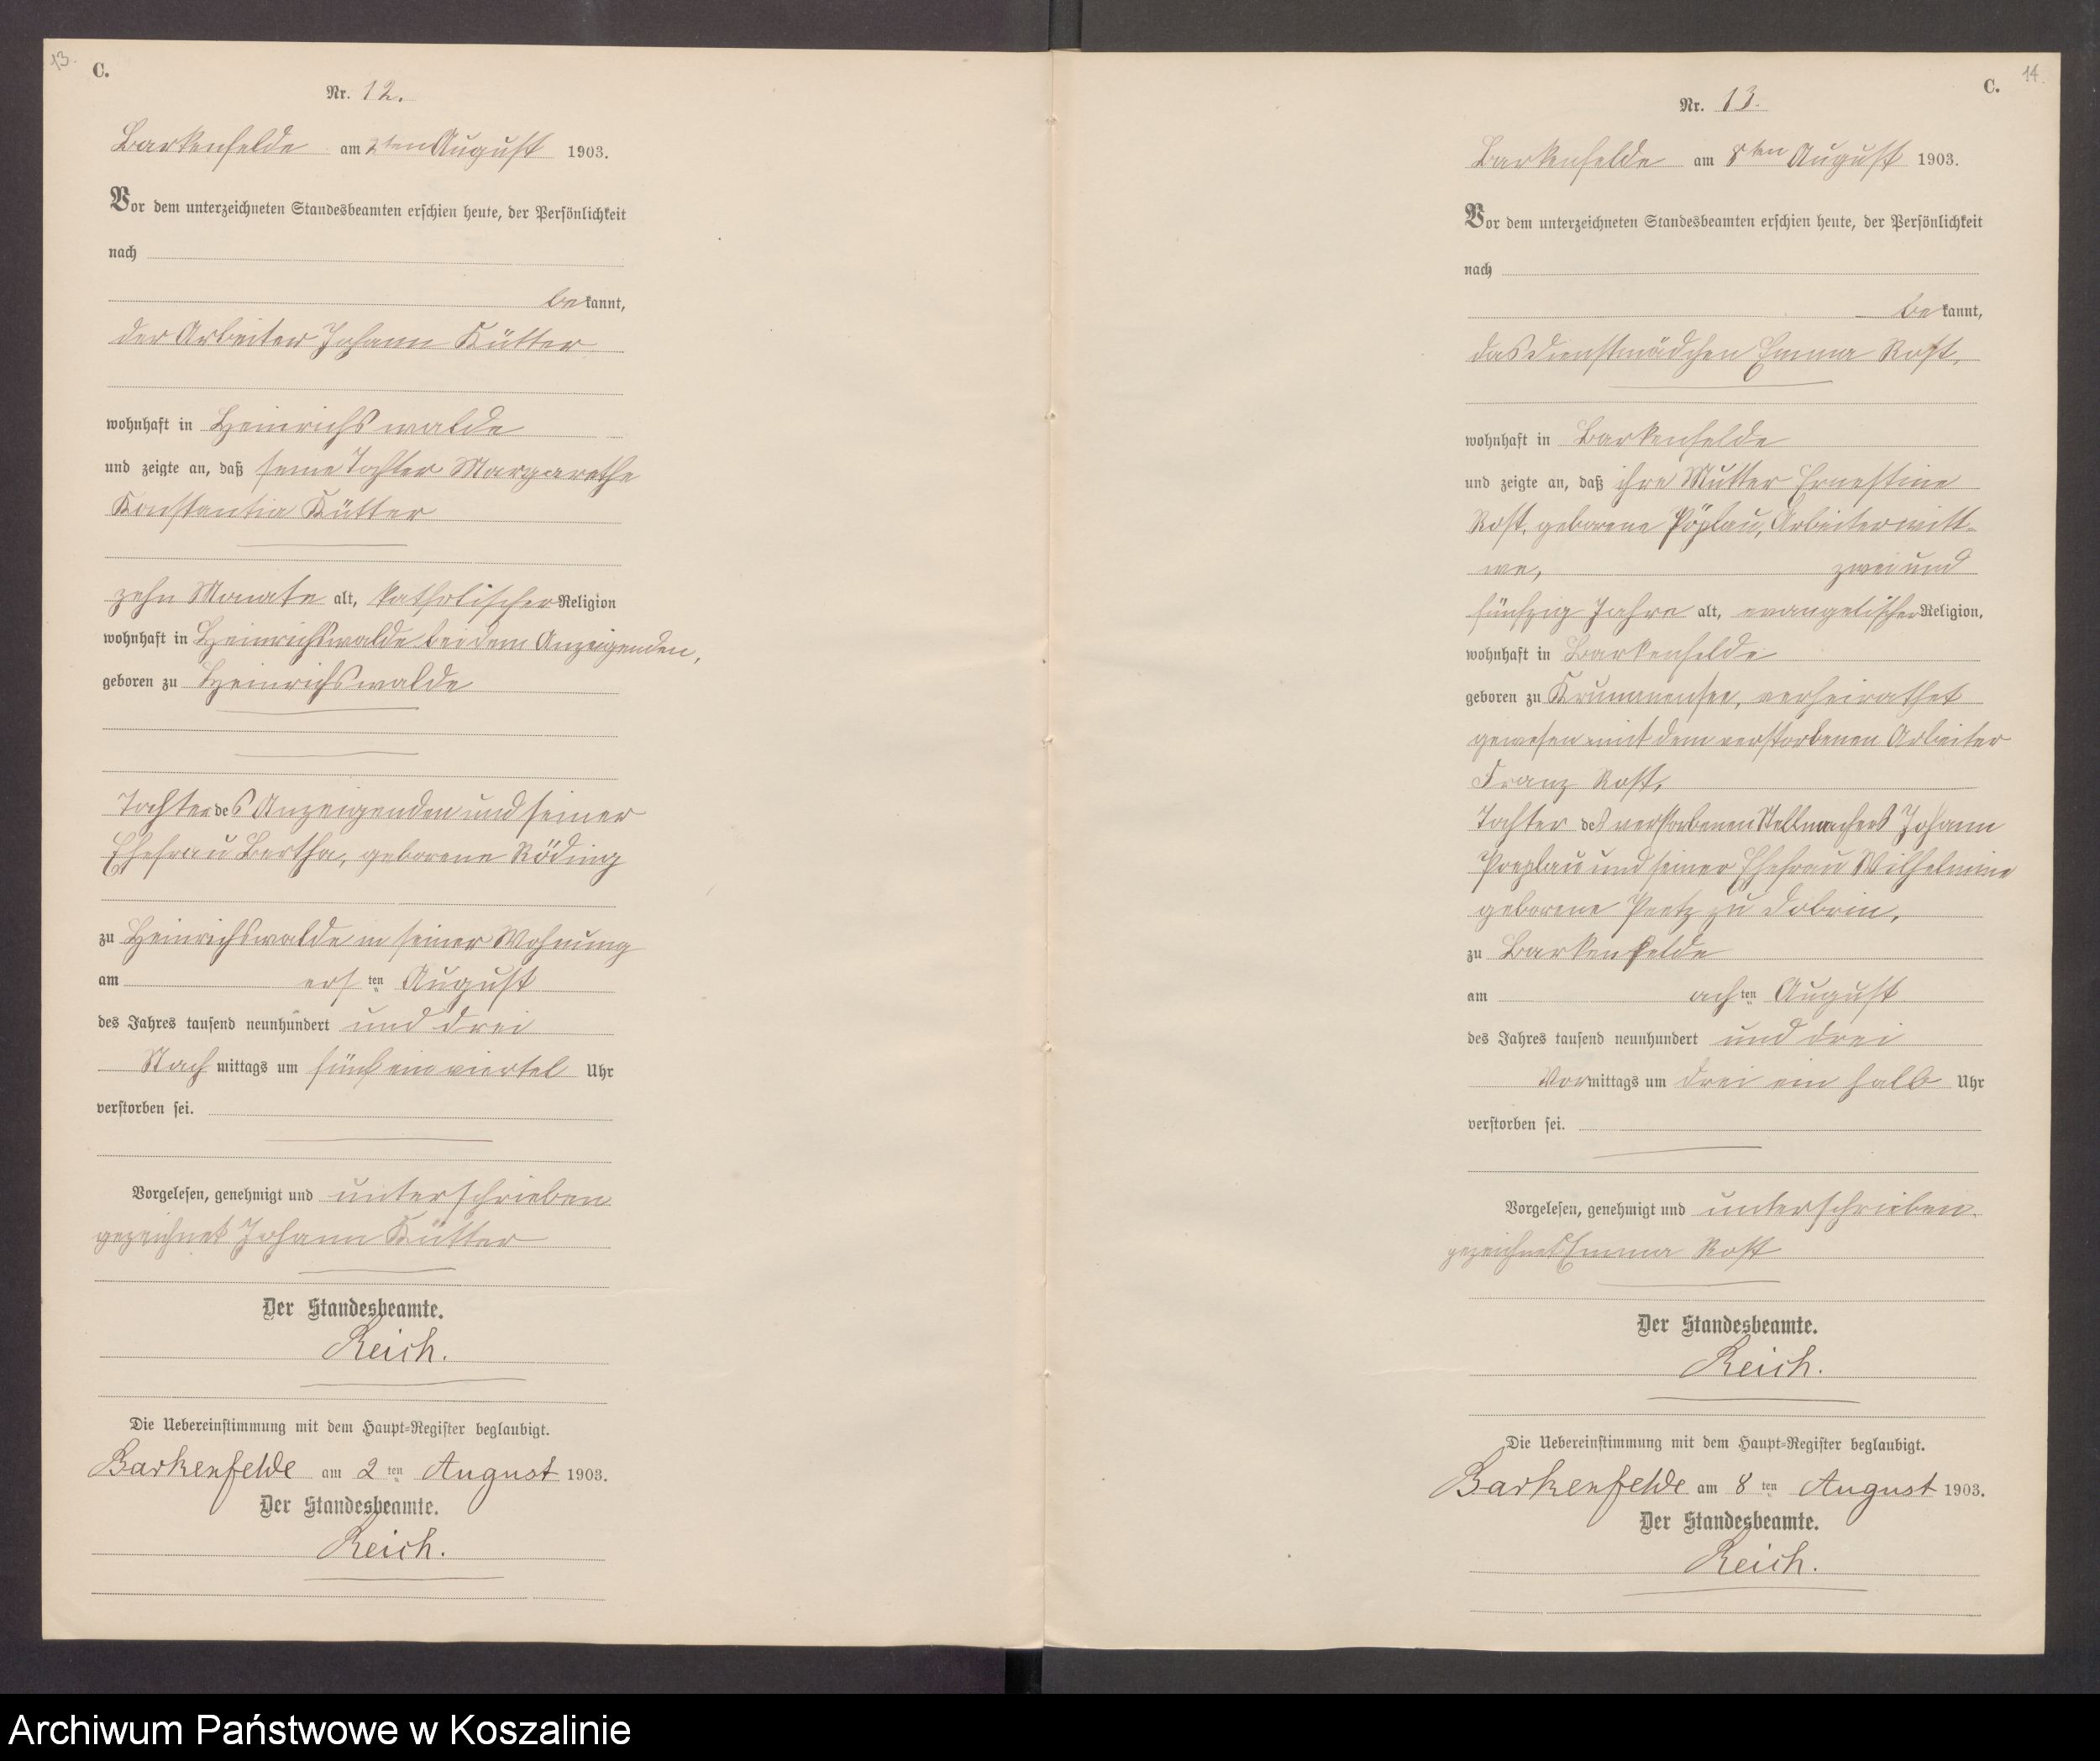 13.
C.
Nr. 12.
Barkenfelde am 2ten August 1903.
Vor dem unterzeichneten Standesbeamten erschien heute, der Persönlichkeit
nach
bekannt,
der Arbeiter Johann Kütter
wohnhaft in Heinrichswalde
und zeigte an, daß seine Tochter Margarethe
Konstantia Kütter
zehn Monate alt, katholischer Religion
wohnhaft in Heinrichswalde bei dem Anzeigenden,
geboren zu Heinrichswalde
Tochter des Anzeigenden und seiner
Ehefrau Bertha, geborene Röding
zu Heinrichswalde in seiner Wohnung
am ersten August
des Jahres tausend neunhundert und drei
Nachmittags um fünf ein viertel Uhr
verstorben sei.
Vorgelesen, genehmigt und unterschrieben
gezeichnet Johann Kütter
Der Standesbeamte.
Reich.
Die Uebereinstimmung mit dem Haupt-Register beglaubigt.
Barkenfelde am 2ten August 1903.
Der Standesbeamte.
Reich.
14.
C.
Nr. 13.
Barkenfelde am 8ten August 1903.
Vor dem unterzeichneten Standesbeamten erschien heute, der Persönlichkeit
nach
bekannt,
das Dienstmädchen Emma Rost,
wohnhaft in Barkenfelde
und zeigte an, daß ihre Mutter Ernestine
Rost, geborene Pöplau, Arbeiterwitt-
we, zwei und
fünfzig Jahre alt, evangelischer Religion,
wohnhaft in Barkenfelde
geboren zu Krummensee, verheirathet
gewesen mit dem verstorbenen Arbeiter
Franz Rost,
Tochter des verstorbenen Stellmachers Johann
Poeplau und seiner Ehefrau Wilhelmine
geborene Peetz zu Dobrin,
zu Barkenfelde
am achten August
des Jahres tausend neunhundert und drei
Vormittags um drei ein halb Uhr
verstorben sei.
Vorgelesen, genehmigt und unterschrieben.
gezeichnet Emma Rost
Der Standesbeamte.
Reich.
Die Uebereinstimmung mit dem Haupt-Register beglaubigt.
Barkenfelde am 8ten August 1903.
Der Standesbeamte.
Reich.
Archiwum Państwowe w Koszalinie